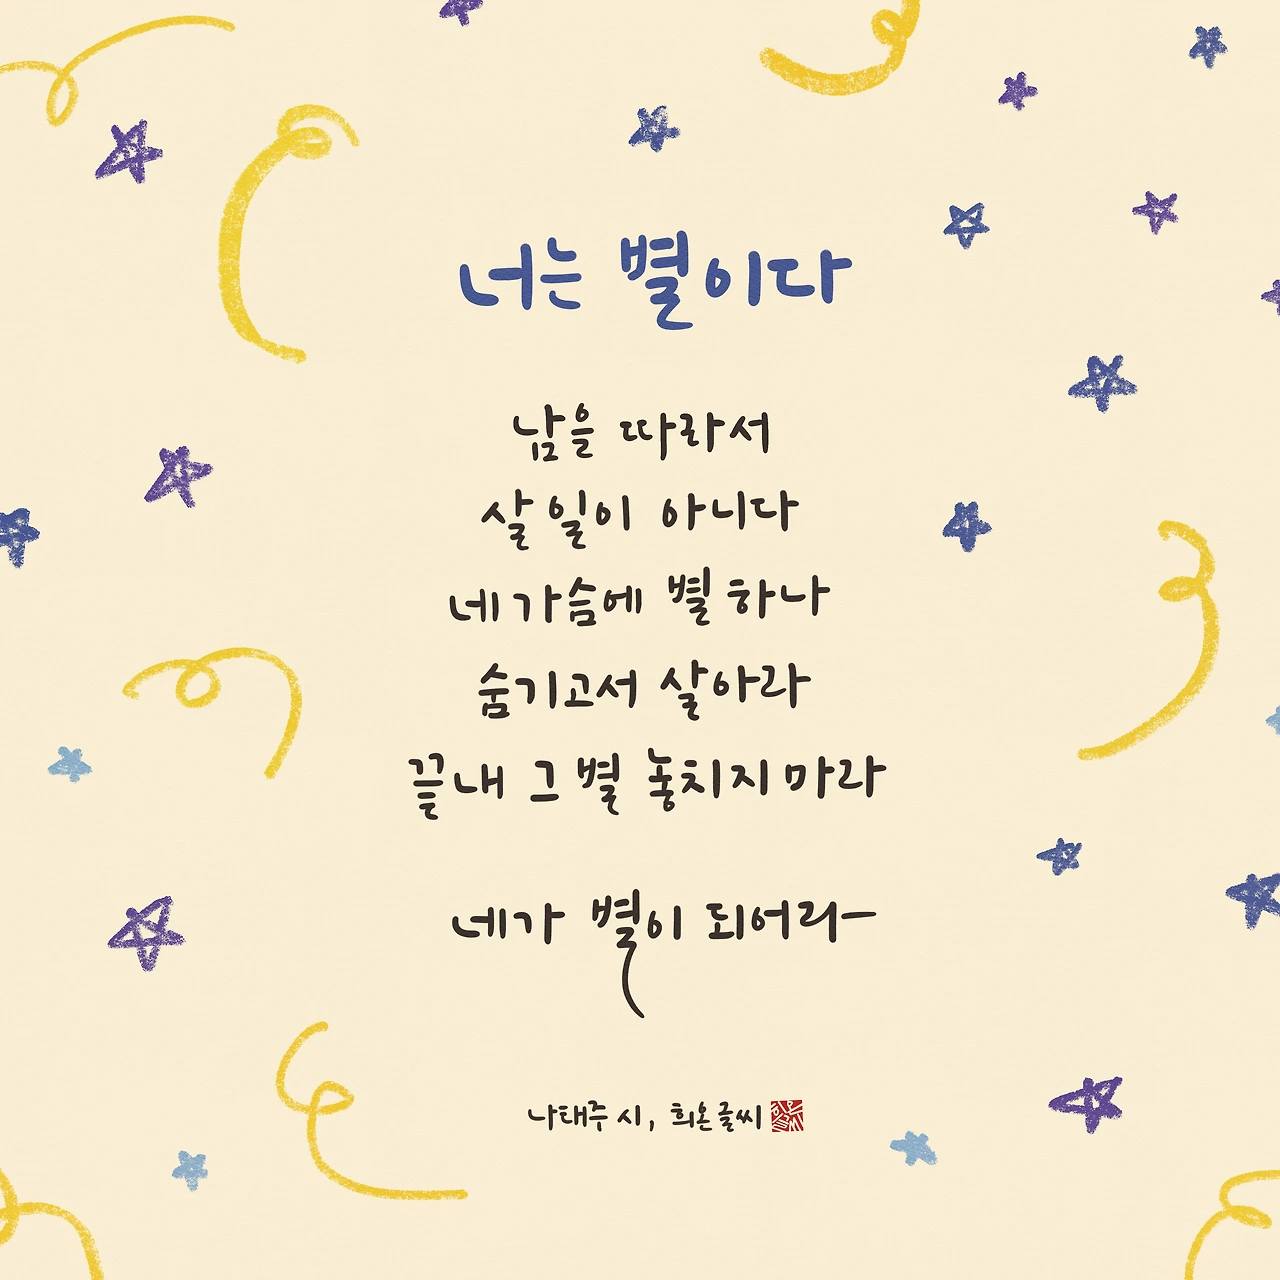 너는 별이다
남을 따라서
살 일이 아니다
네 가슴에 별 하나
숨기고서 살아라
끝내 그 별 놓치지 마라
네가 별이 되어라
나태주 시, 희온글씨